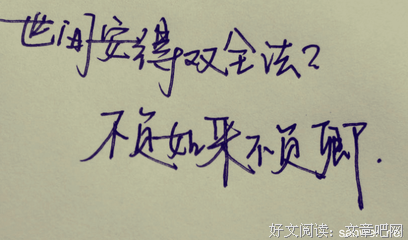 世间安得双全法?
不负如来不负卿.
好文阅读:文章吧网